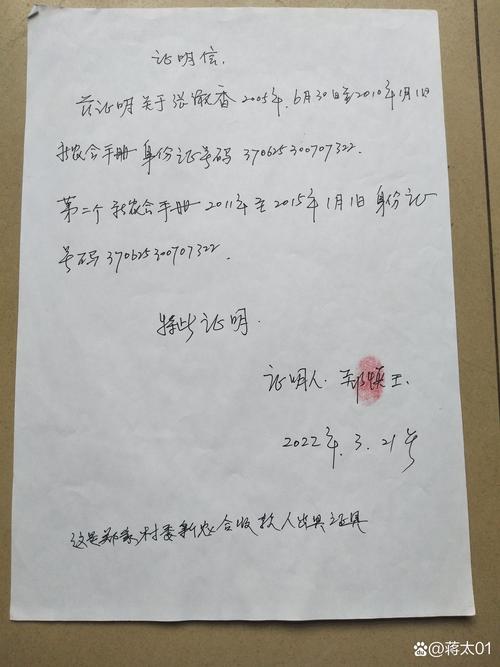 证明信.
兹证明关于张淑香2005年.6月30日至2010年1月1日
新农合手册身份证号码370625300707322.
第二个新农合手册2011年至2015年1月1日身份证
号码370625300707322.
特此证明.
证明人. 郑 王.
2022年.3.21号
这是郑家村委新农合收款人出具证具
@蒋太01